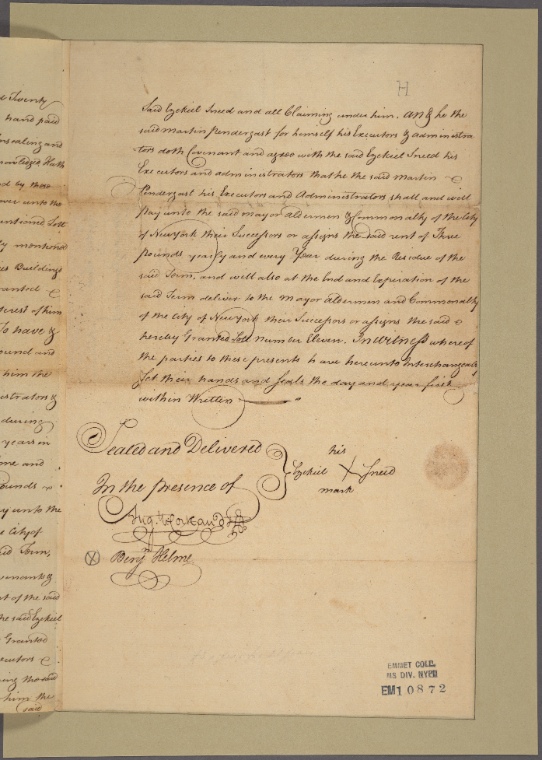 H
Said Ezekiel Sneed and all Claiming under him. And he the
said Martin Pendergast for himself his Executors & administra
tors doth Covenant and agree with the said Ezekiel Sneed his
Executors and administrators that he the said Martin
Pendergast his Executors and Administrators shall and will
pay unto the said mayor aldermen & Commonalty of the City
of New York their Successors or assigns the said rent of Three
pounds yearly and every Year during the Residue of the
said Term, and well also at the End and Expiration of the
said Term deliver to the Mayor Aldermen and Commonalty
of the City of New York their Successors or assigns the said
hereby Granted Lott number Eleven. In witness whereof
the parties to these presents have hereunto Interchangeably
Set their hands and Seals the day and year first
within Written
Sealed and Delivered
In the presence of
his
Ezekiel X Sneed
mark
Benj Helme
d Twenty
hand paid
d by these
unto the
mentioned Lott
mentioned
Buildings
of him
To have &
ound and
him the
istrators &
during
years in
me and
ounds
ay unto the
City of
id Term,
of the said
the said Ezekiel
Granted
cutors
him the
said
EMMET COLL.
MS DIV. NYPL
EM10872